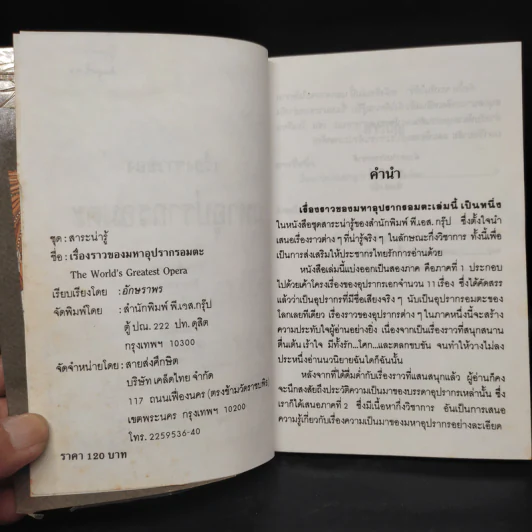 ชุด : สาระน่ารู้
ชื่อ : เรื่องราวของมหาอุปรากรอมตะ
The World's Greatest Opera
เรียบเรียงโดย : อักษราพร
จัดพิมพ์โดย : สำนักพิมพ์ พี.เอส.กรุ๊ป
ตู้ ปณ. 222 ปท. ดุสิต
กรุงเทพฯ 10300
จัดจำหน่ายโดย : สายส่งศึกษิต
บริษัท เคล็ดไทย จำกัด
117 ถนนเฟื่องนคร (ตรงข้ามวัดราชบพิธ)
เขตพระนคร กรุงเทพฯ 10200
โทร. 2259536-40
ราคา 120 บาท
คำนำ
เรื่องราวของมหาอุปรากรอมตะเล่มนี้ เป็นหนึ่ง
ในหนังสือชุดสาระน่ารู้ของสำนักพิมพ์ พี.เอส. กรุ๊ป ซึ่งตั้งใจนำ
เสนอเรื่องราวต่าง ๆ ที่น่ารู้จริง ๆ ในลักษณะกึ่งวิชาการ ทั้งนี้เพื่อ
เป็นการส่งเสริมให้ประชากรไทยรักการอ่านด้วย
หนังสือเล่มนี้แบ่งออกเป็นสองภาค คือภาคที่ 1 ประกอบ
ไปด้วยเค้าโครงเรื่องของอุปรากรเอกจำนวน 11 เรื่อง ซึ่งได้คัดสรร
แล้วว่าเป็นอุปรากรที่มีชื่อเสียงจริง ๆ นับเป็นอุปรากรอมตะของ
โลกเลยทีเดียว เรื่องราวของอุปรากรต่าง ๆ ในภาคหนึ่งนี้จะสร้าง
ความประทับใจผู้อ่านอย่างยิ่ง เนื่องจากเป็นเรื่องราวที่สนุกสนาน
ตื่นเต้น เร้าใจ มีทั้งรัก...โศก...และตลกขบขัน จนทำให้วางไม่ลง
ประหนึ่งอ่านนวนิยายฉันใดก็ฉันนั้น
หลังจากที่ได้ดื่มด่ำกับเรื่องราวที่แสนสนุกแล้ว ผู้อ่านก็คง
จะนึกสงสัยถึงประวัติความเป็นมาของบรรดาอุปรากรเหล่านั้น ซึ่ง
เราก็ได้เสนอภาคที่ 2 ซึ่งมีเนื้อหากึ่งวิชาการ อันเป็นการเสนอ
ความรู้เกี่ยวกับเรื่องความเป็นมาของมหาอุปรากรอย่างละเอียด